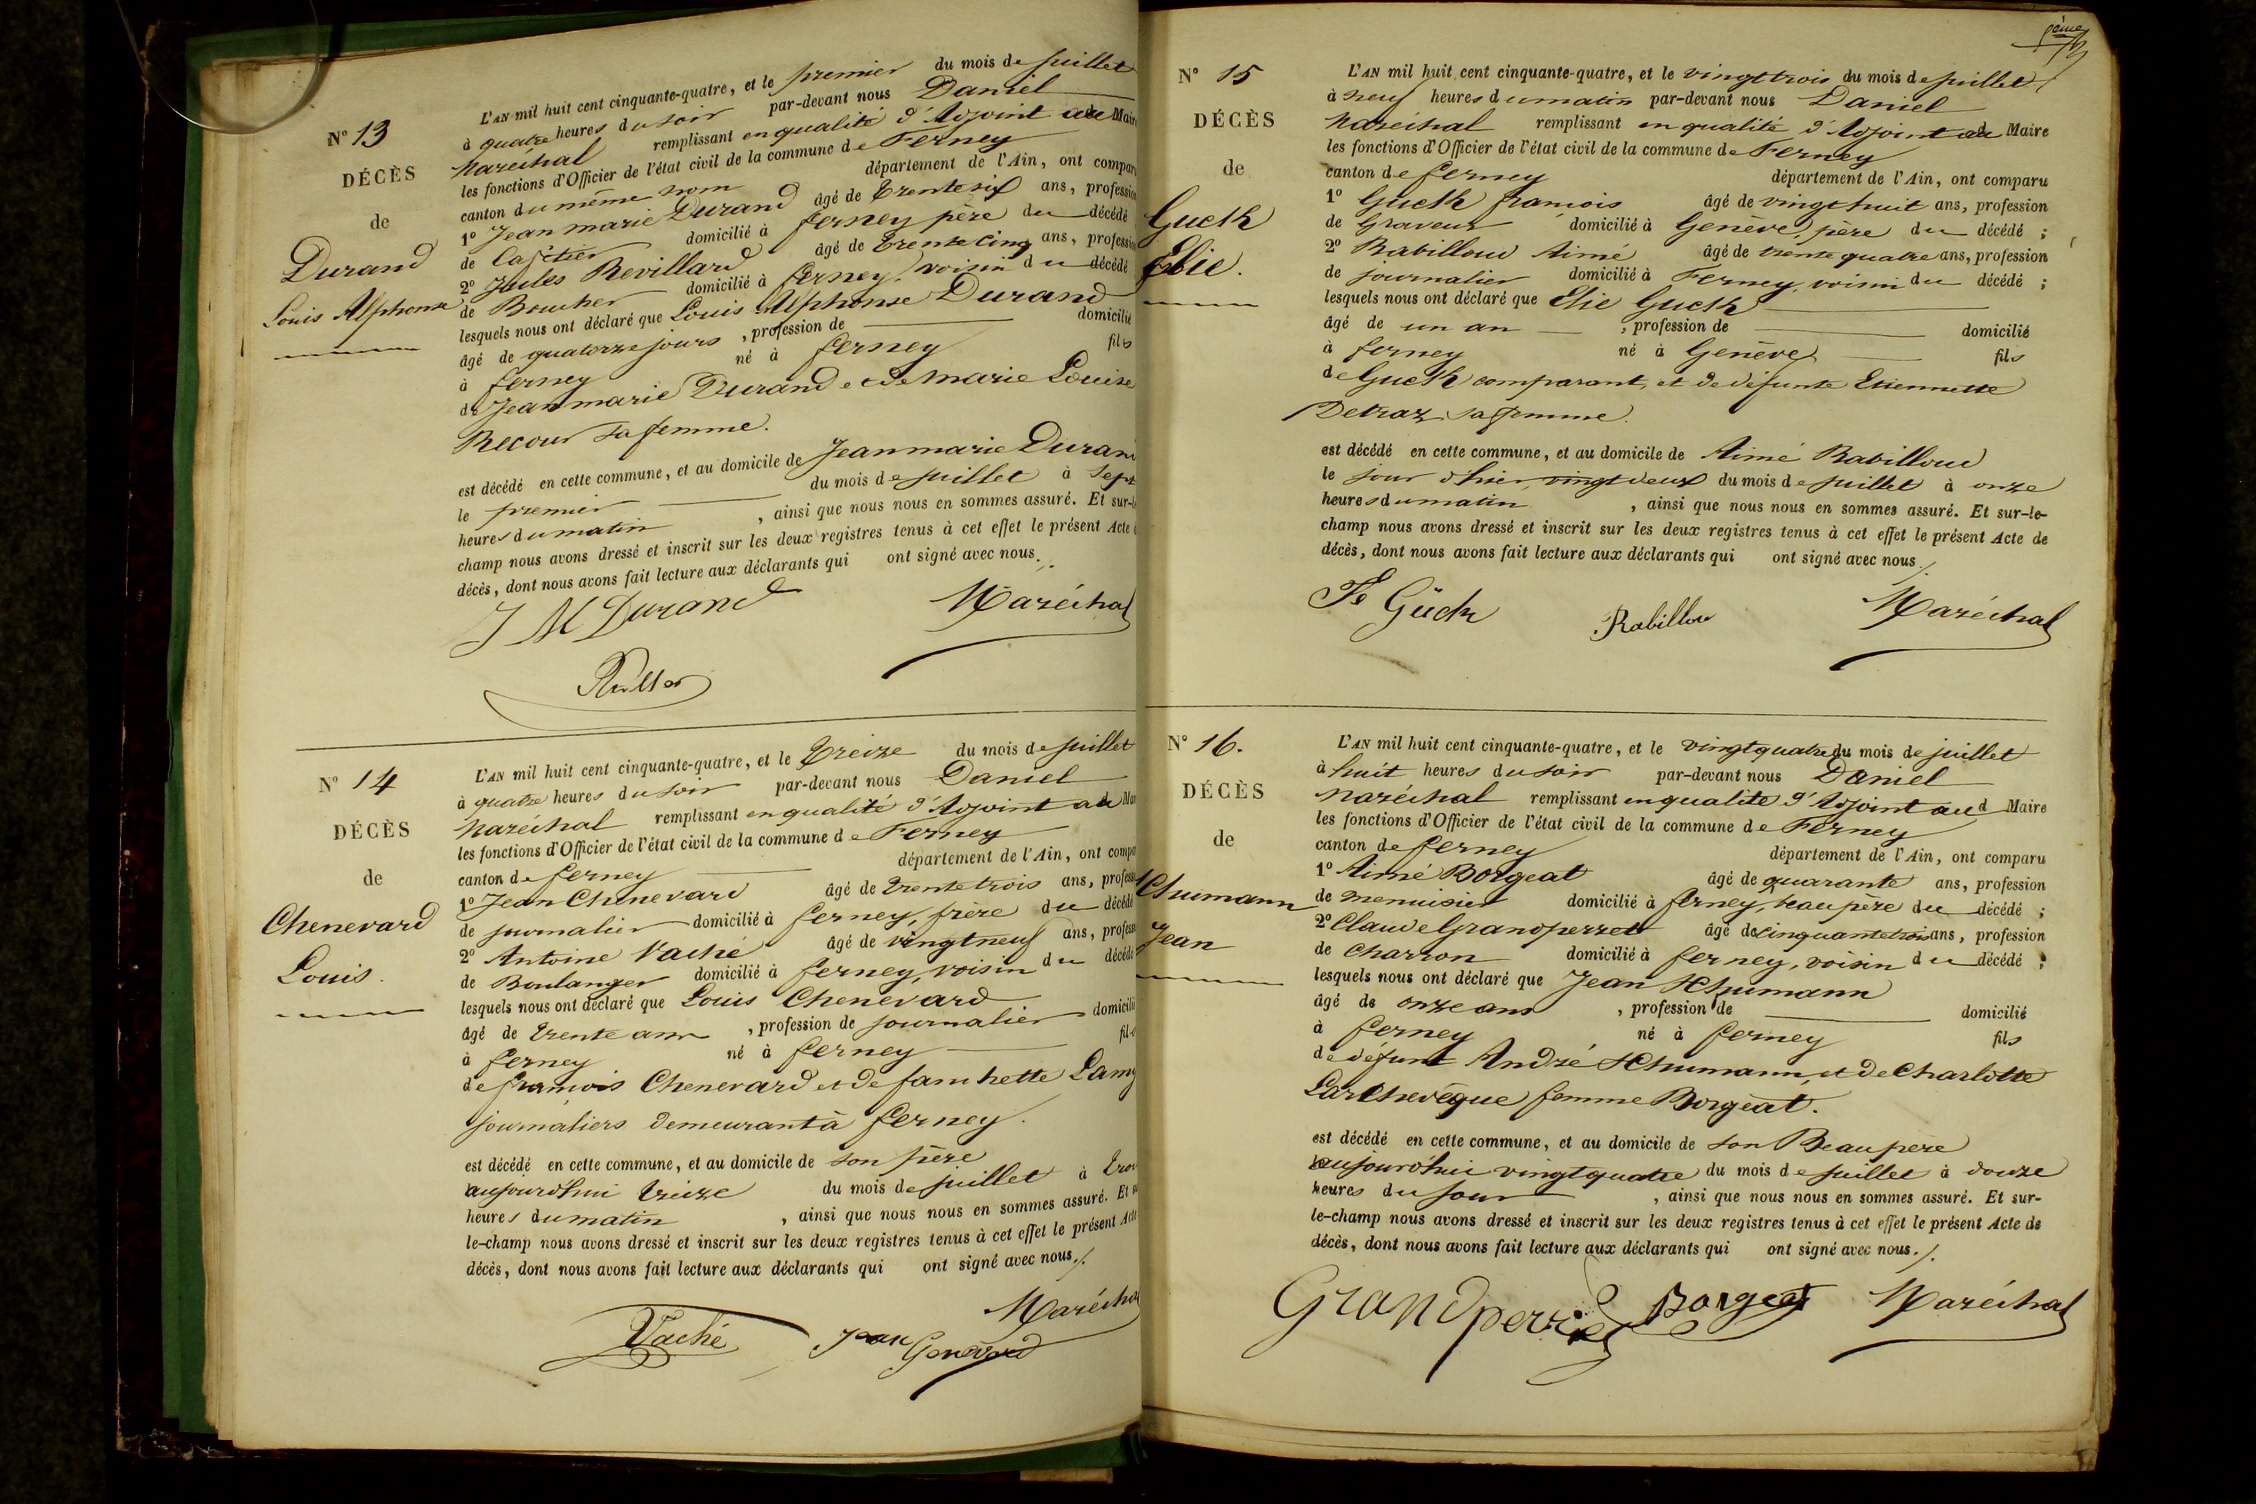 N° 13
DÉCÈS
de
Durand
Louis Alphonse
L'AN mil huit cent cinquante-quatre, et le premier du mois de juillet
à quatre heures du soir par-devant nous Daniel
Maréchal remplissant en qualité d'Adjoint au Maire
les fonctions d'Officier de l'état civil de la commune de Ferney
canton du même nom département de l'Ain, ont comparu
1° Jean marie Durand âgé de trente six ans, profession
de Cafetier domicilié à ferney père du décédé
2° Jules Revillard âgé de trente cinq ans, profession
de Boucher domicilié à ferney, voisin du décédé
lesquels nous ont déclaré que Louis Alphonse Durand
âgé de quatorze jours, profession de domicilié
à ferney né à ferney fils
de Jean marie Durand et de marie Louise
Recour sa femme.
est décédé en cette commune, et au domicile de Jean marie Durand
le premier du mois de juillet à sept
heures du matin, ainsi que nous nous en sommes assuré. Et sur-le
champ nous avons dressé et inscrit sur les deux registres tenus à cet effet le présent Acte
décès, dont nous avons fait lecture aux déclarants qui ont signé avec nous.
J M Durand Maréchal
N° 14
DÉCÈS
de
Chenevard
Louis.
L'AN mil huit cent cinquante-quatre, et le treize du mois de juillet
à quatre heures du soir par-devant nous Daniel
Maréchal remplissant en qualité d'Adjoint au Maire
les fonctions d'Officier de l'état civil de la commune de Ferney
canton de ferney département de l'Ain, ont comparu
1° Jean Chenevard âgé de trente trois ans, profession
de journalier domicilié à ferney, frère du décédé
2° Antoine Vaché âgé de vingt neuf ans, profession
de Boulanger domicilié à ferney, voisin du décédé
lesquels nous ont déclaré que Louis Chenevard
âgé de trente ans, profession de journalier domicilié
à ferney né à ferney fils
de françois Chenevard et de fanchette Lamy
journaliers demeurant à ferney.
est décédé en cette commune, et au domicile de son père
aujourd'hui treize du mois de juillet à trois
heures du matin, ainsi que nous nous en sommes assuré. Et sur
le-champ nous avons dressé et inscrit sur les deux registres tenus à cet effet le présent Acte
décès, dont nous avons fait lecture aux déclarants qui ont signé avec nous./.
Maréchal
Vaché Jean Genevard
N° 15
DÉCÈS
de
Gueth
Elie.
L'AN mil huit cent cinquante-quatre, et le vingt trois du mois de juillet
à neuf heures du matin par-devant nous Daniel
Maréchal remplissant en qualité d'Adjoint au Maire
les fonctions d'Officier de l'état civil de la commune de Ferney
canton de ferney département de l'Ain, ont comparu
1° Gueth françois âgé de vingt huit ans, profession
de Graveur domicilié à Genève, père du décédé ;
2° Babilloud Aimé âgé de trente quatre ans, profession
de journalier domicilié à Ferney, voisin du décédé ;
lesquels nous ont déclaré que Elie Gueth
âgé de un an, profession de domicilié
à ferney né à Genève fils
de Gueth comparant, et de défunte Etiennette
Detraz sa femme.
est décédé en cette commune, et au domicile de Aimé Babilloud
le jour d'hier vingt deux du mois de juillet à onze
heures du matin, ainsi que nous nous en sommes assuré. Et sur-le-
champ nous avons dressé et inscrit sur les deux registres tenus à cet effet le présent Acte de
décès, dont nous avons fait lecture aux déclarants qui ont signé avec nous./.
Fs Gücht Rabillou Maréchal
N° 16.
DÉCÈS
de
Schumann
Jean
L'AN mil huit cent cinquante-quatre, et le vingt quatre du mois de juillet
à huit heures du soir par-devant nous Daniel
Maréchal remplissant en qualité d'Adjoint au Maire
les fonctions d'Officier de l'état civil de la commune de Ferney
canton de ferney département de l'Ain, ont comparu
1° Aimé Borgeat âgé de quarante ans, profession
de menuisier domicilié à ferney, beau père du décédé ;
2° Claude Grandperret âgé de cinquante trois ans, profession
de Charron domicilié à ferney, voisin du décédé ;
lesquels nous ont déclaré que Jean Schumann
âgé de onze ans, profession de domicilié
à ferney né à ferney fils
de défunt André Schumann, et de Charlotte
Larchevêque femme Borgeat.
est décédé en cette commune, et au domicile de son Beau père
aujourd'hui vingt quatre du mois de juillet à douze
heures du jour, ainsi que nous nous en sommes assuré. Et sur-
le-champ nous avons dressé et inscrit sur les deux registres tenus à cet effet le présent Acte de
décès, dont nous avons fait lecture aux déclarants qui ont signé avec nous./.
Grandperret Borgeat Maréchal